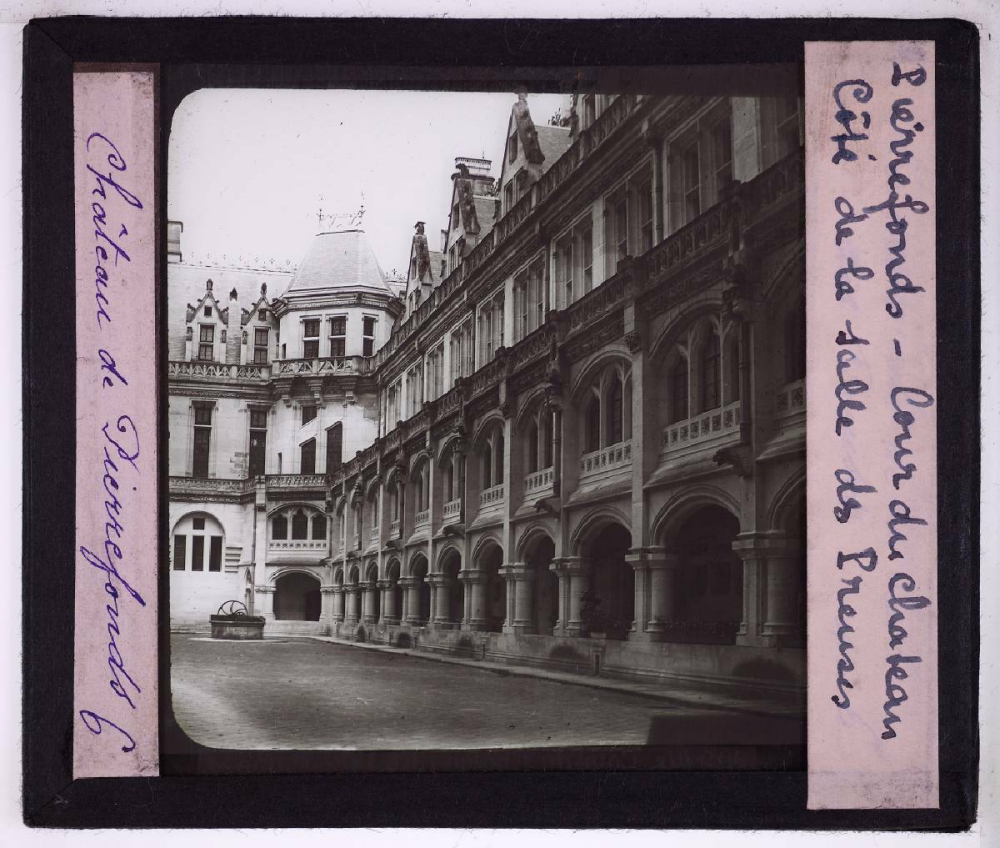 Château de Pierrefonds 6
Pierrefonds - Cour du chateau
Côté de la salle des Preuses